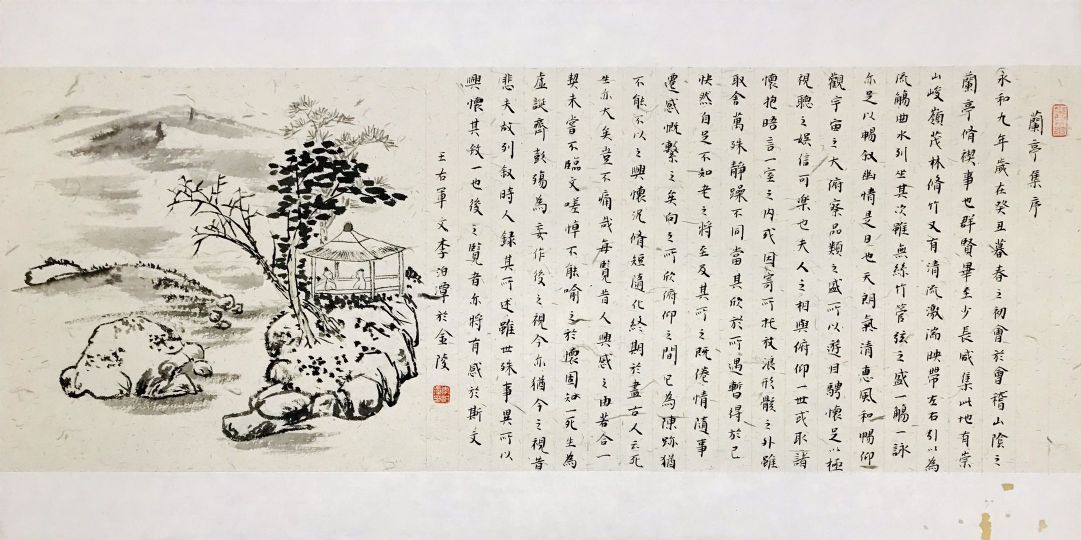 蘭亭集序
永和九年歲在癸丑暮春之初會於會稽山陰之
蘭亭脩禊事也群賢畢至少長咸集此地有崇
山峻嶺茂林脩竹又有清流激湍映帶左右引以為
流觴曲水列坐其次雖無絲竹管弦之盛一觴一詠
亦足以暢叙幽情是日也天朗氣清惠風和暢仰
觀宇宙之大俯察品類之盛所以遊目騁懷足以極
視聽之娛信可樂也夫人之相與俯仰一世或取諸
懷抱晤言一室之内或因寄所托放浪形骸之外雖
取舍萬殊靜躁不同當其欣於所遇暫得於己
快然自足不知老之將至及其所之既倦情隨事
遷感慨繫之矣向之所欣俯仰之間已為陳跡猶
不能不以之興懷況脩短隨化終期於盡古人云死
生亦大矣豈不痛哉每覽昔人興感之由若合一
契未嘗不臨文嗟悼不能喻之於懷固知一死生為
虛誕齊彭殤為妄作後之視今亦猶今之視昔
悲夫故列叙時人録其所述雖世殊事異所以
興懷其致一也後之覽者亦將有感於斯文
王右軍文李泊潭於金陵